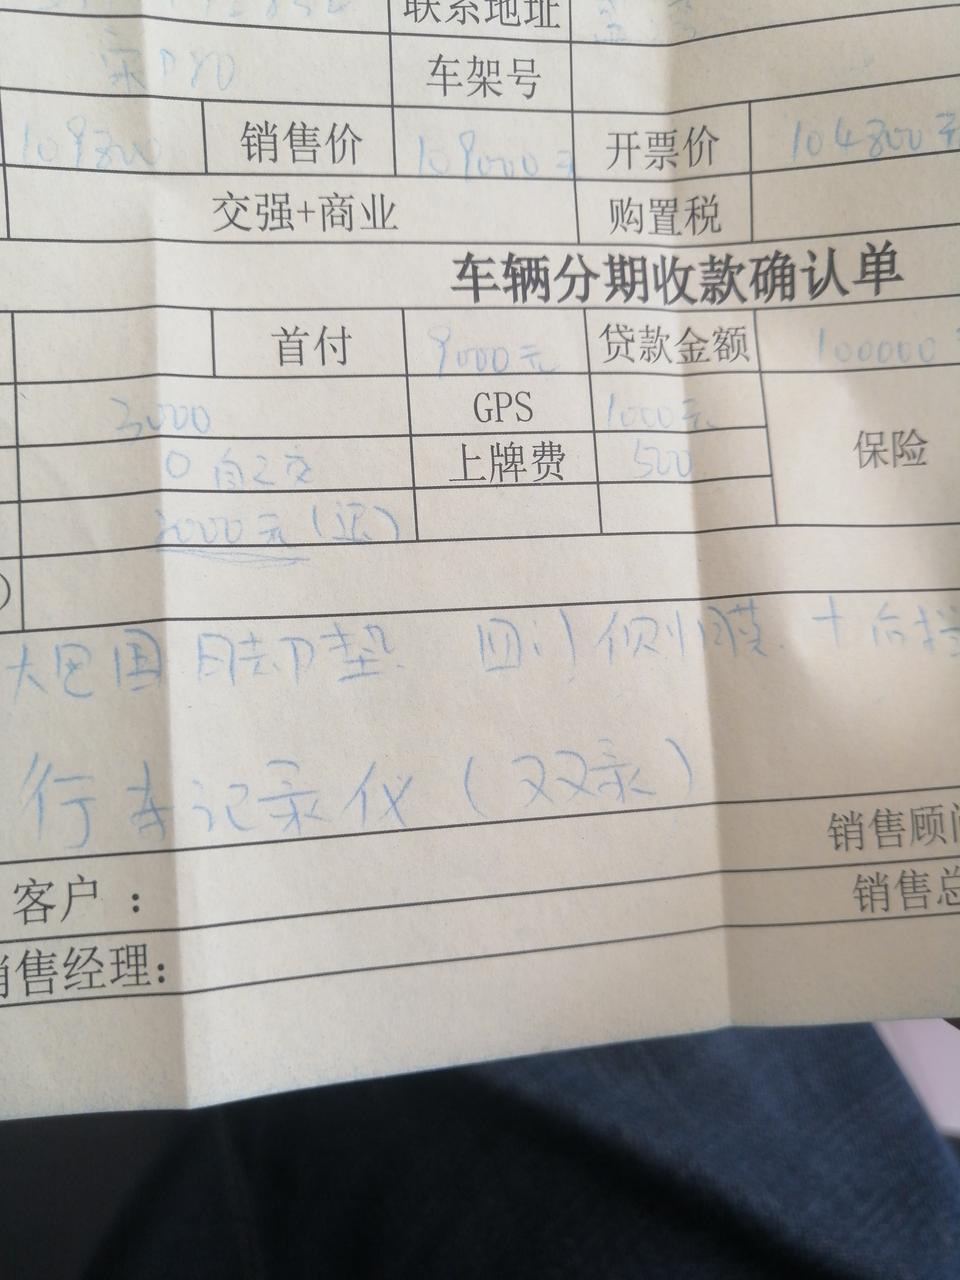 联系地址
宋 车架号
109800 销售价 109000元 开票价 104800元
交强+商业 购置税
车辆分期收款确认单
首付 9000元 贷款金额 100000
3000 GPS 1000元
0 自己交 上牌费 500 保险
3000元(退)
大包围 脚垫 四门侧膜 +后挡
行车记录仪(双录)
销售顾问
客户:
销售总
销售经理: